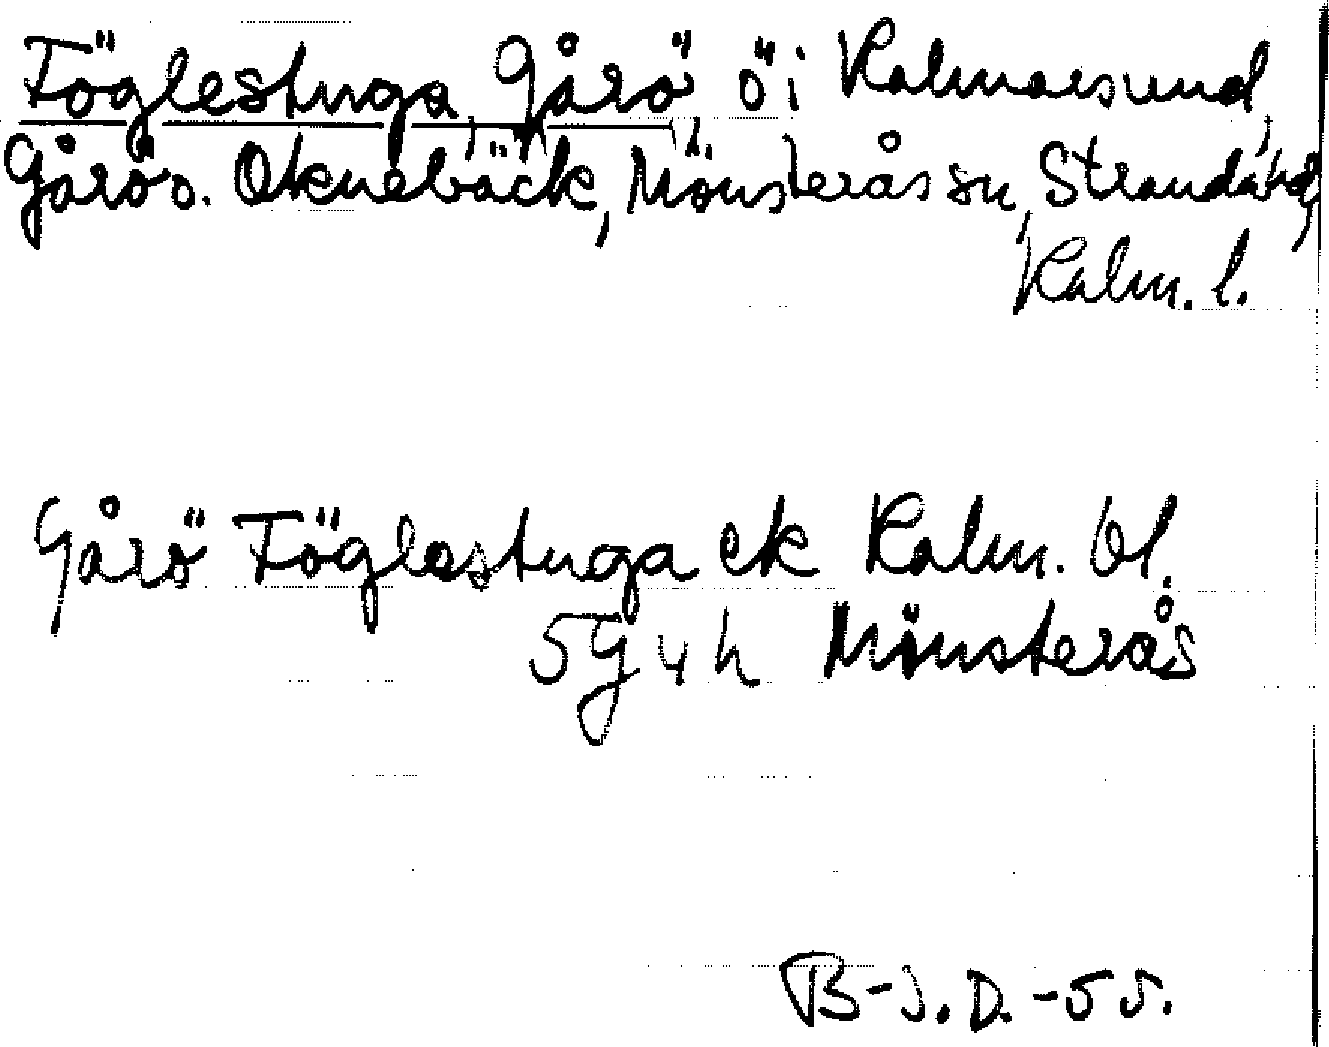 Töglestuga, Gårö, ö i Kalmarsund,
Gårö o. Oknebäck, Mönsterås sn, Stranda hd,
Kalm. l.
Gårö Töglestuga ek Kalm. bl.
5g4h Mönsterås
B-J.D.-55.